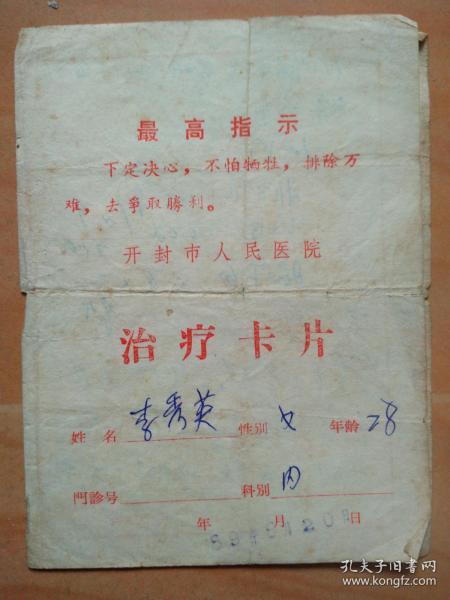 最高指示
下定决心，不怕牺牲，排除万
难，去争取勝利。
开封市人民医院
治疗卡片
姓名 李秀英 性别 女 年龄 28
門診号 科别 内
年 月 日
孔夫子旧书网
www.kongfz.com